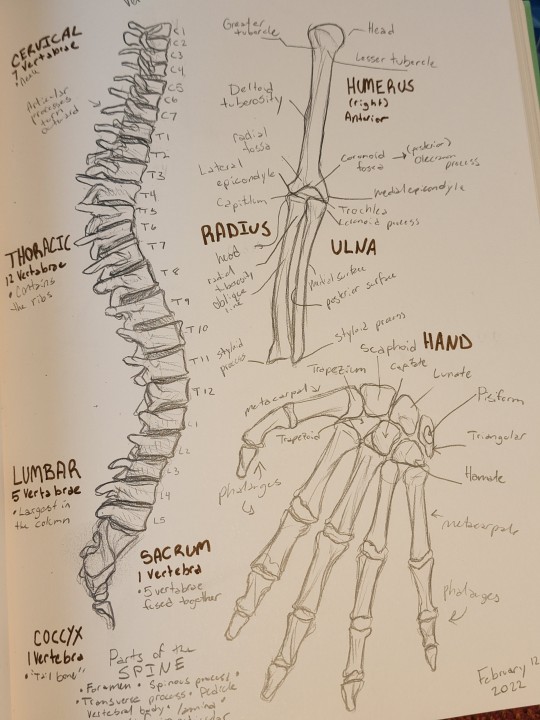 CERVICAL
7 Vertabrae
• Neck
Articular
processes
turn
outward
C1
C2
C3
C4
C5
C6
C7
T1
T2
T3
T4
T5
T6
T7
T8
T9
T10
T11
T12
L1
L2
L3
L4
L5
THORACIC
12 Vertabrae
• Contains
the ribs
LUMBAR
5 Vertabrae
• Largest in
the column
SACRUM
1 Vertebra
• 5 vertabrae
fused together
COCCYX
1 Vertebra
• "Tail bone"
Parts of the
SPINE
• Foramen • Spinous process •
• Transverse process • Pedicle
Vertebral body • lamina •
Greater
tubercle
Head
Lesser tubercle
HUMERUS
(right)
Anterior
Deltoid
tuberosity
radial
fossa
Lateral
epicondyle
Capitlum
coronoid → (posterior)
fossa olecranon
process
medial epicondyle
Trochlea
coronoid process
RADIUS
head
radial
tuberosity
oblique
line
ULNA
medial surface
posterior surface
styloid process
styloid
process
HAND
Scaphoid
Trapezium
Capitate
Lunate
Pisiform
Triangular
Hamate
metacarpals
Trapezoid
phalanges
metacarpals
phalanges
February 12
2022